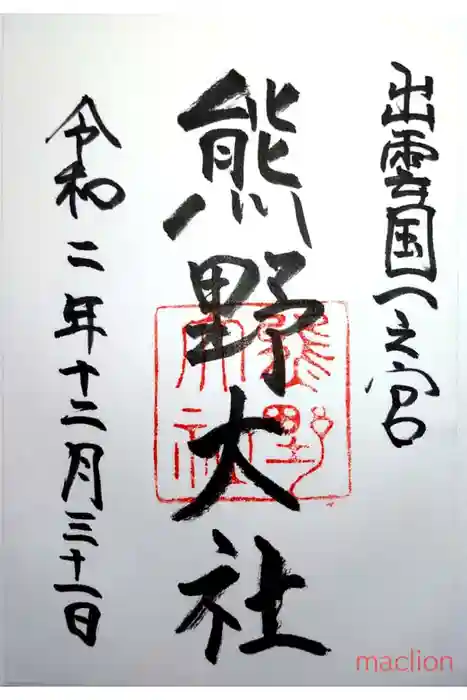 出雲国一之宮
熊野大社
熊野大社
令和二年十二月三十一日
maclion